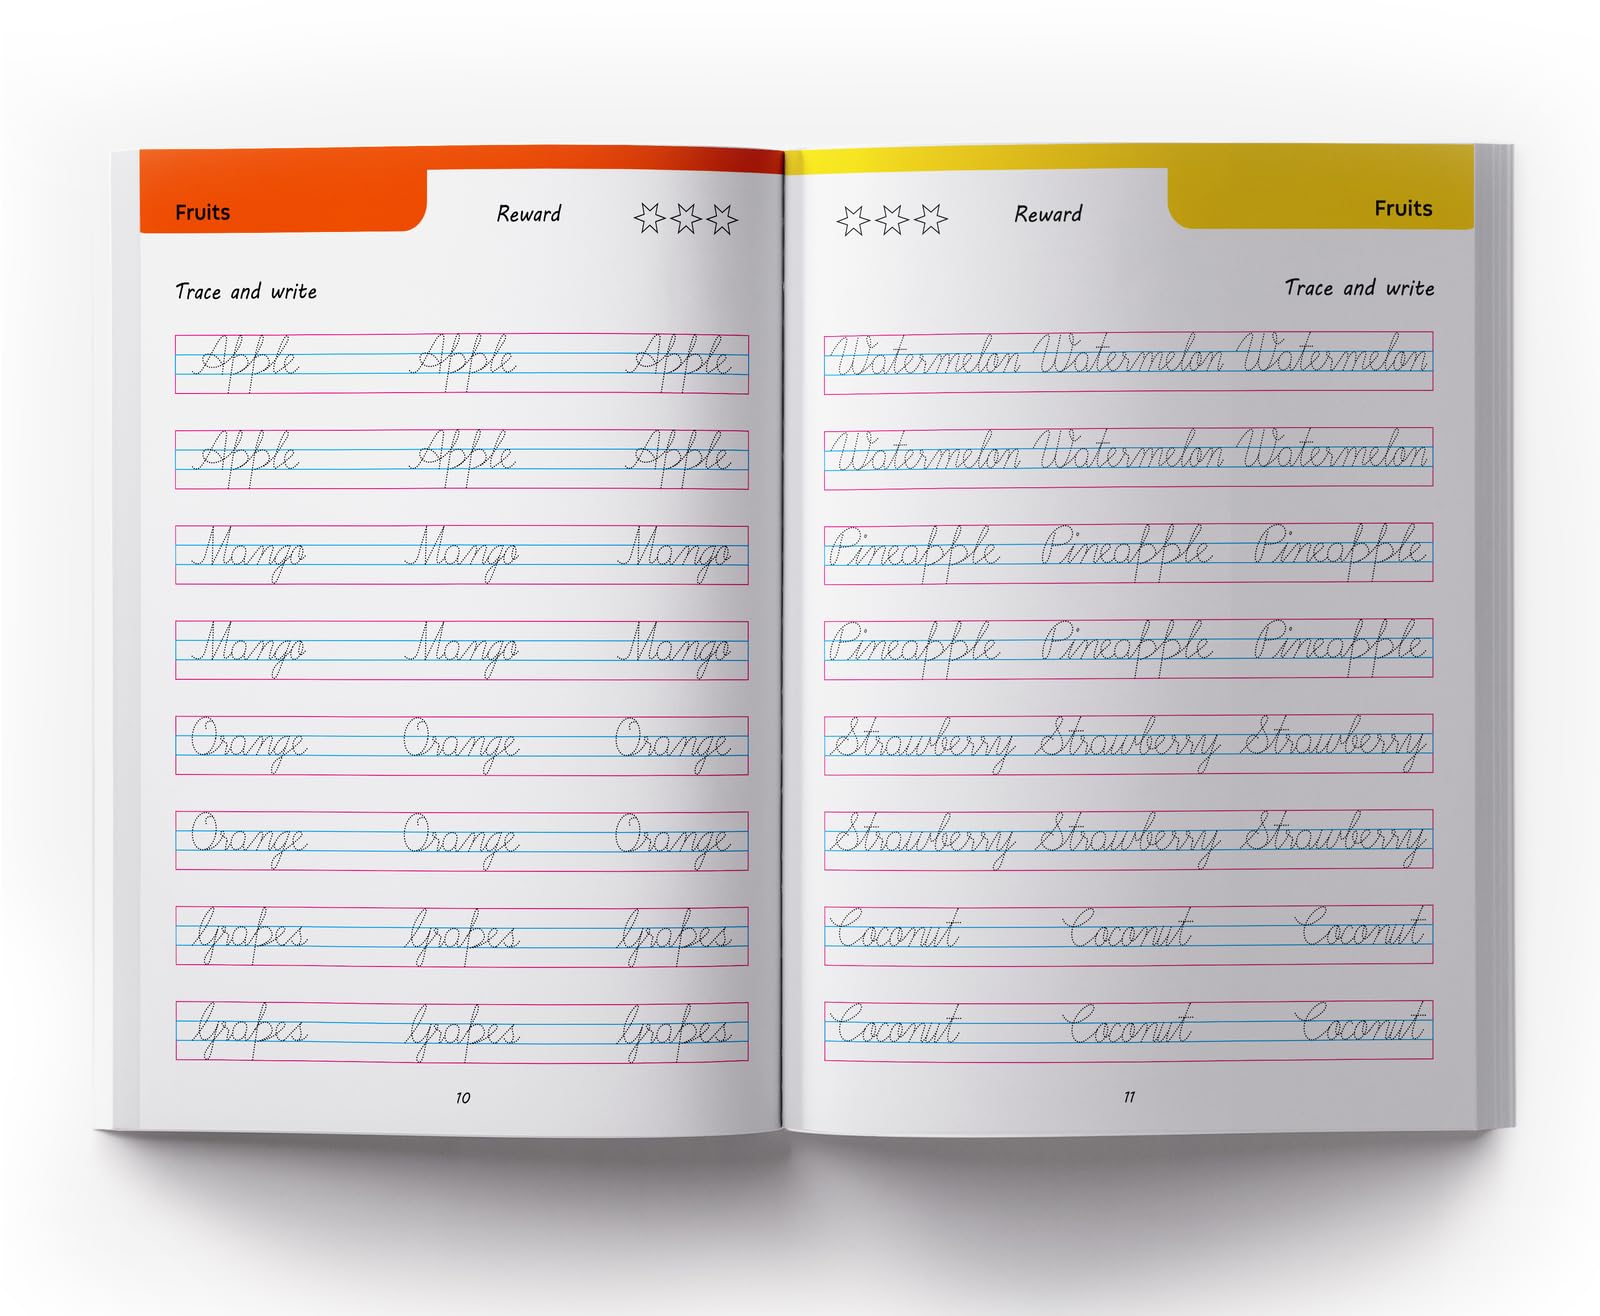 Fruits
Reward
Trace and write
Apple Apple Apple
Apple Apple Apple
Mango Mango Mango
Mango Mango Mango
Orange Orange Orange
Orange Orange Orange
Grapes Grapes Grapes
Grapes Grapes Grapes
10
Reward
Fruits
Trace and write
Watermelon Watermelon Watermelon
Watermelon Watermelon Watermelon
Pineapple Pineapple Pineapple
Pineapple Pineapple Pineapple
Strawberry Strawberry Strawberry
Strawberry Strawberry Strawberry
Coconut Coconut Coconut
Coconut Coconut Coconut
11